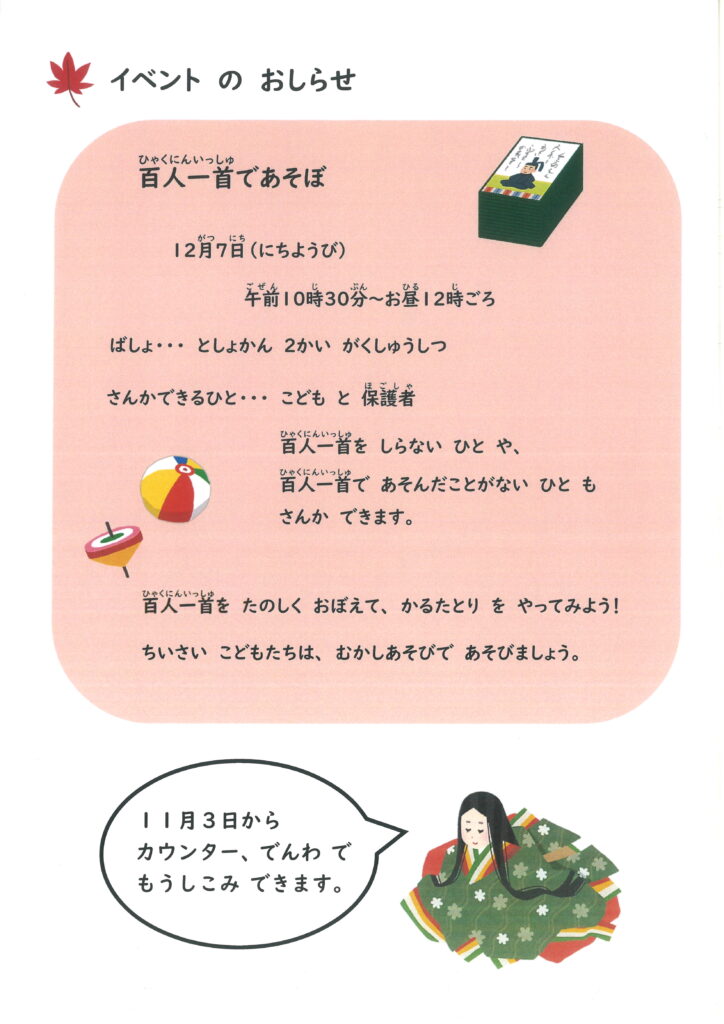 イベント の おしらせ
ひゃくにんいっしゅ
百人一首であそぼ
がつ にち
12月7日(にちようび)
ごぜん じ ぷん ひる じ
午前10時30分~お昼12時ごろ
ばしょ・・・ としょかん 2かい がくしゅうしつ
ほごしゃ
さんかできるひと・・・ こども と 保護者
ひゃくにんいっしゅ
百人一首を しらない ひと や、
ひゃくにんいっしゅ
百人一首で あそんだことがない ひと も
さんか できます。
ひゃくにんいっしゅ
百人一首を たのしく おぼえて、かるたとり を やってみよう!
ちいさい こどもたちは、むかしあそびで あそびましょう。
11月3日から
カウンター、でんわ で
もうしこみ できます。